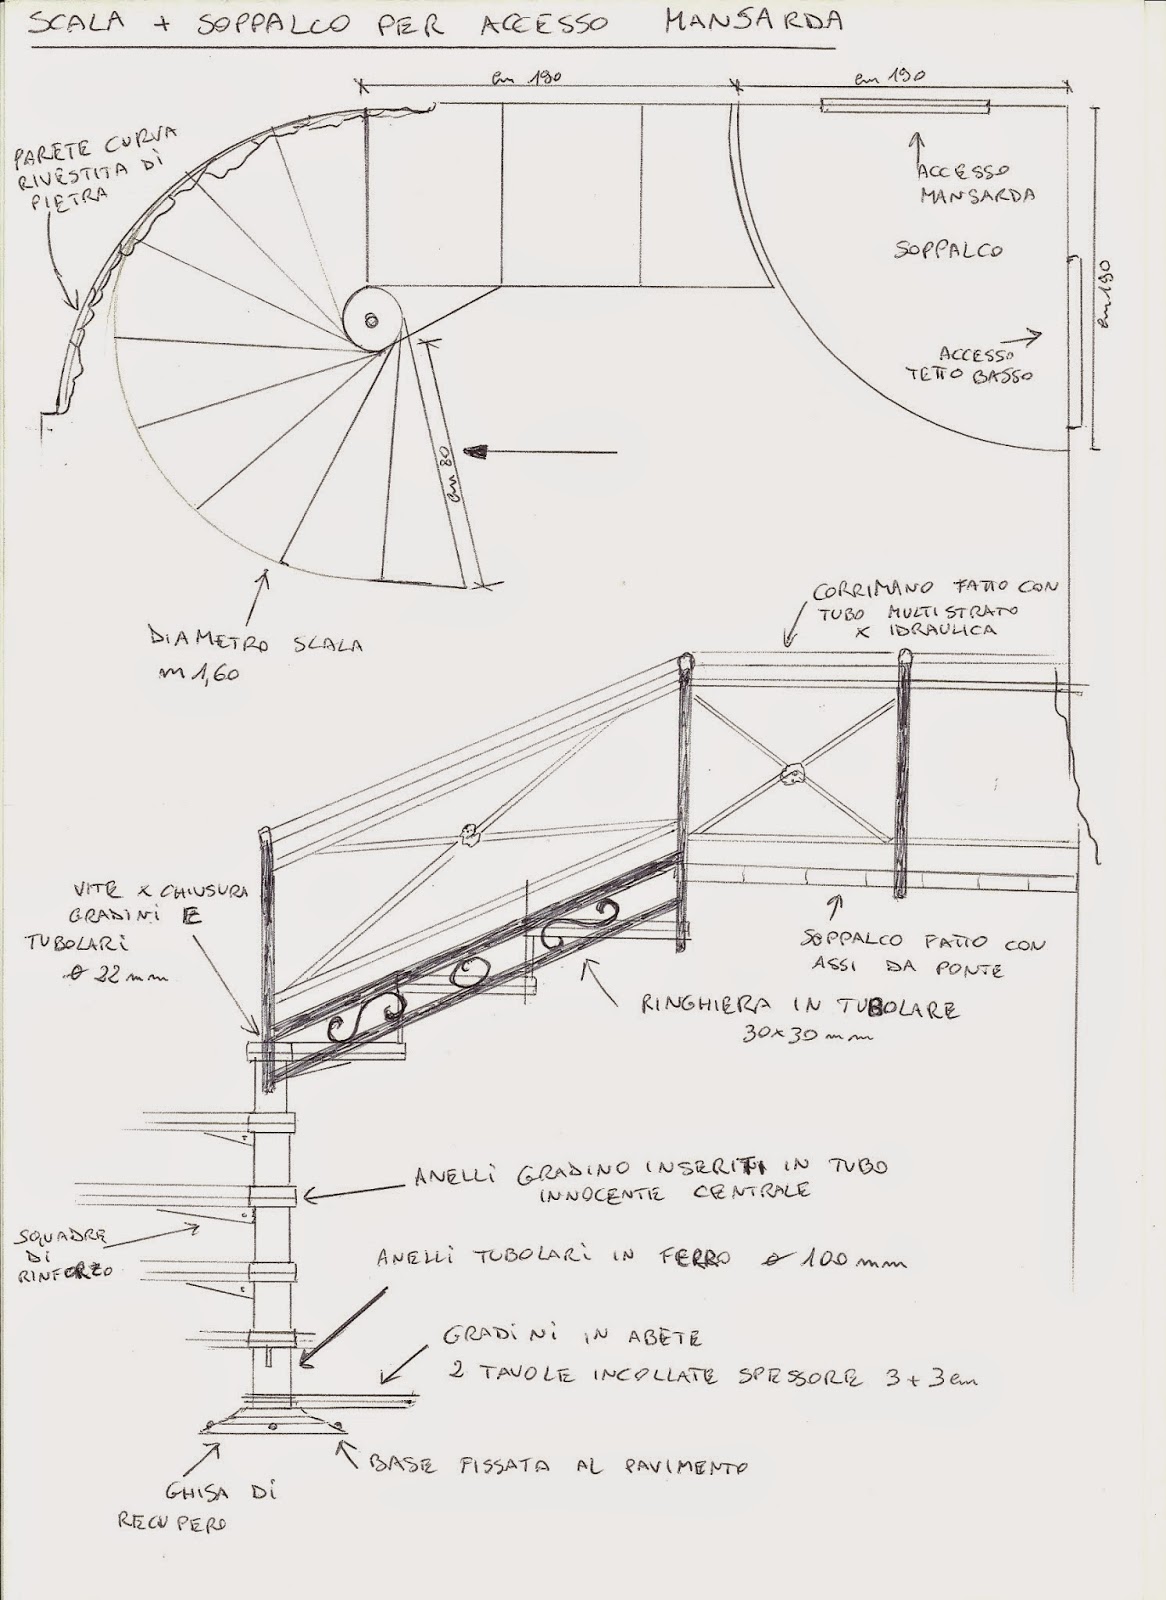 SCALA + SOPPALCO PER ACCESSO MANSARDA
cm 190
cm 190
PARETE CURVA
RIVESTITA DI
PIETRA
ACCESSO
MANSARDA
SOPPALCO
cm 190
ACCESSO
TETTO BASSO
cm 80
DIAMETRO SCALA
m 1,60
CORRIMANO FATTO CON
TUBO MULTISTRATO
x IDRAULICA
VITE x CHIUSURA
GRADINI E
TUBOLARI
ø 22 mm
SOPPALCO FATTO CON
ASSI DA PONTE
RINGHIERA IN TUBOLARE
30x30 mm
ANELLI GRADINO INSERITI IN TUBO
INNOCENTE CENTRALE
SQUADRE
DI
RINFORZO
ANELLI TUBOLARI IN FERRO ø 100 mm
GRADINI IN ABETE
2 TAVOLE INCOLLATE SPESSORE 3+3 cm
BASE FISSATA AL PAVIMENTO
GHISA DI
RECUPERO